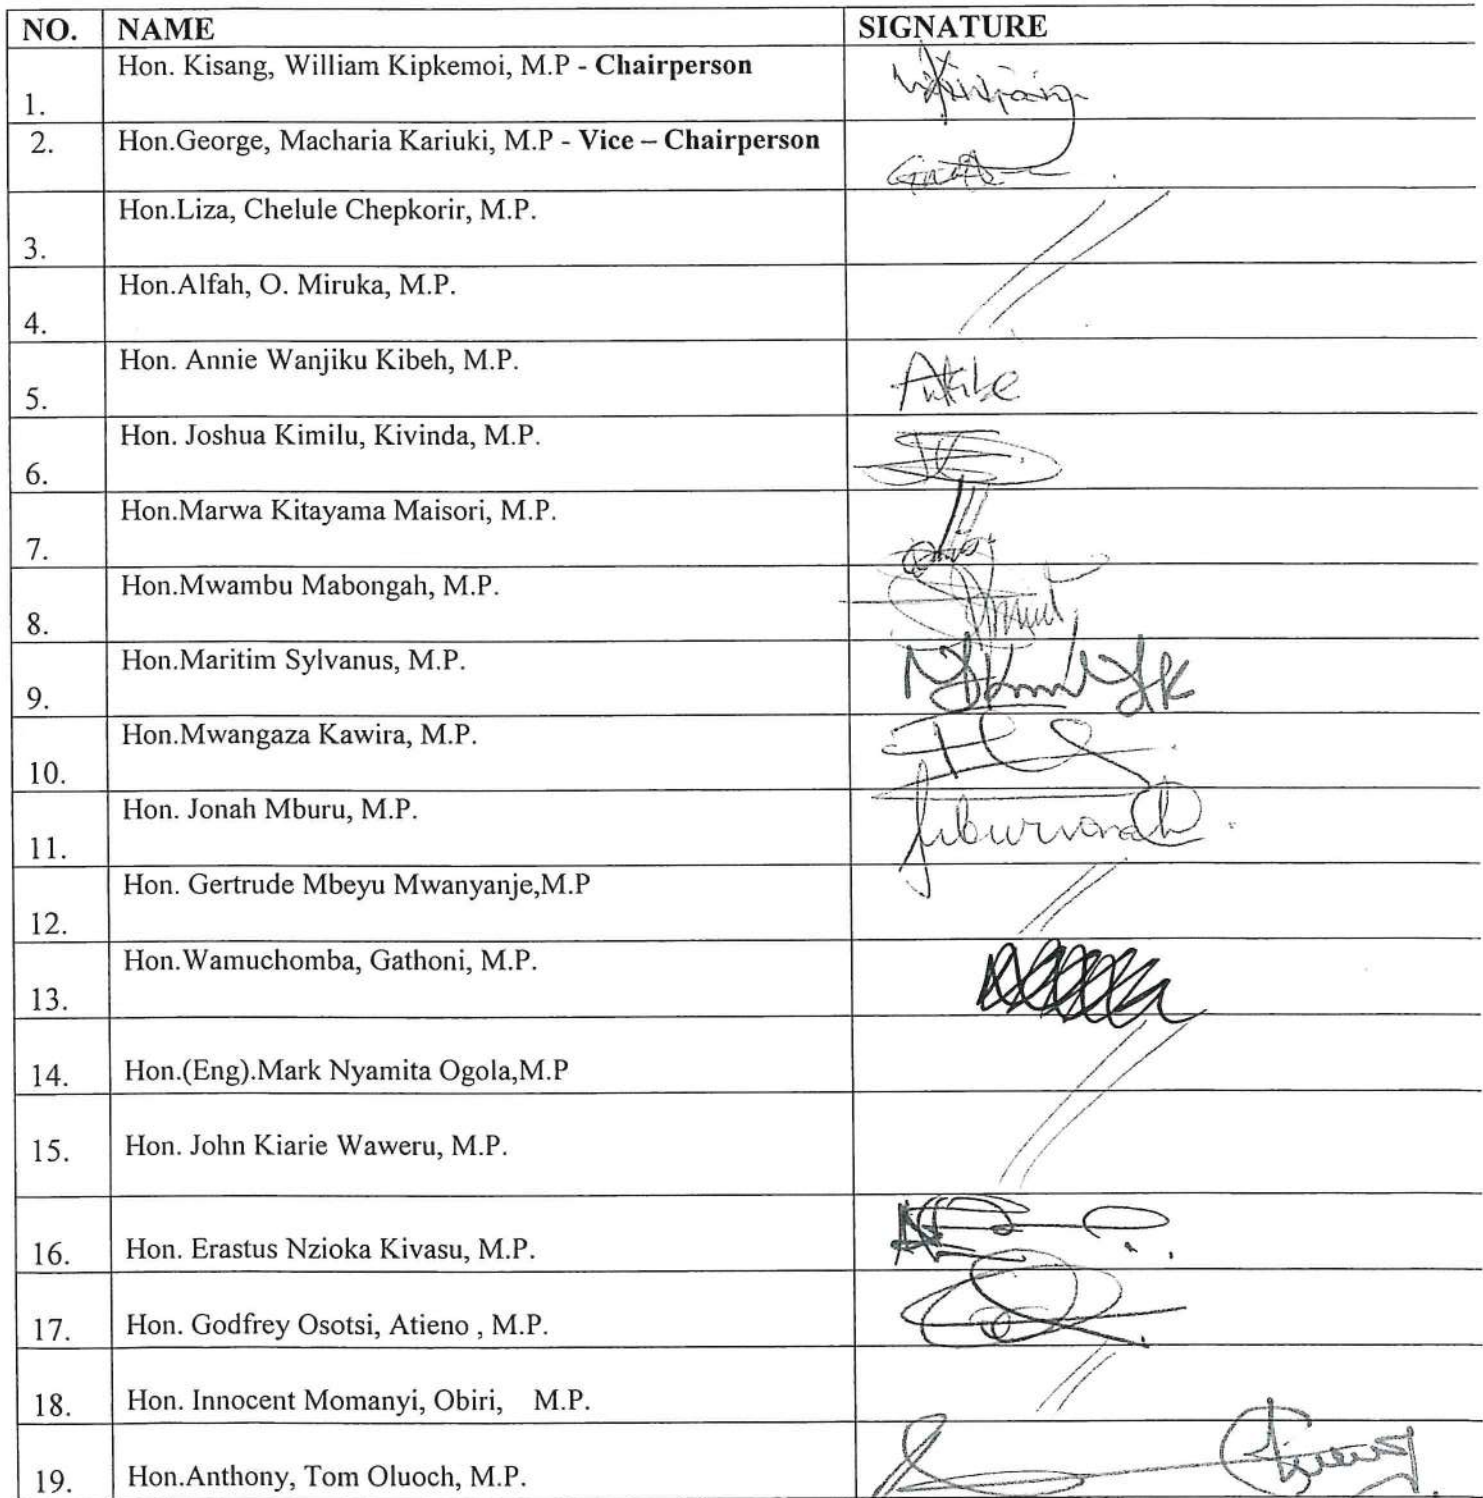 NO. NAME SIGNATURE
1. Hon. Kisang, William Kipkemoi, M.P - Chairperson
2. Hon.George, Macharia Kariuki, M.P - Vice – Chairperson
3. Hon.Liza, Chelule Chepkorir, M.P.
4. Hon.Alfah, O. Miruka, M.P.
5. Hon. Annie Wanjiku Kibeh, M.P.
6. Hon. Joshua Kimilu, Kivinda, M.P.
7. Hon.Marwa Kitayama Maisori, M.P.
8. Hon.Mwambu Mabongah, M.P.
9. Hon.Maritim Sylvanus, M.P.
10. Hon.Mwangaza Kawira, M.P.
11. Hon. Jonah Mburu, M.P.
12. Hon. Gertrude Mbeyu Mwanyanje,M.P
13. Hon.Wamuchomba, Gathoni, M.P.
14. Hon.(Eng).Mark Nyamita Ogola,M.P
15. Hon. John Kiarie Waweru, M.P.
16. Hon. Erastus Nzioka Kivasu, M.P.
17. Hon. Godfrey Osotsi, Atieno , M.P.
18. Hon. Innocent Momanyi, Obiri, M.P.
19. Hon.Anthony, Tom Oluoch, M.P.